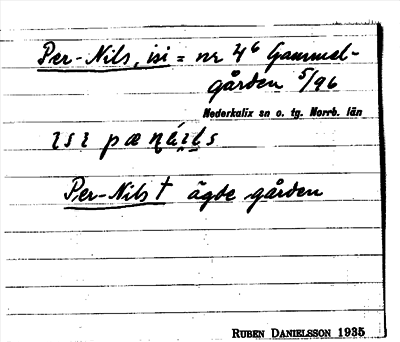 Per-Nils, isi = nr 4⁶ Gammel-
gården 5/96
Nederkalix sn o. tg. Norrb. län
ɪsɪ pæ
Per-Nils † ägde gården
RUBEN DANIELSSON 1935